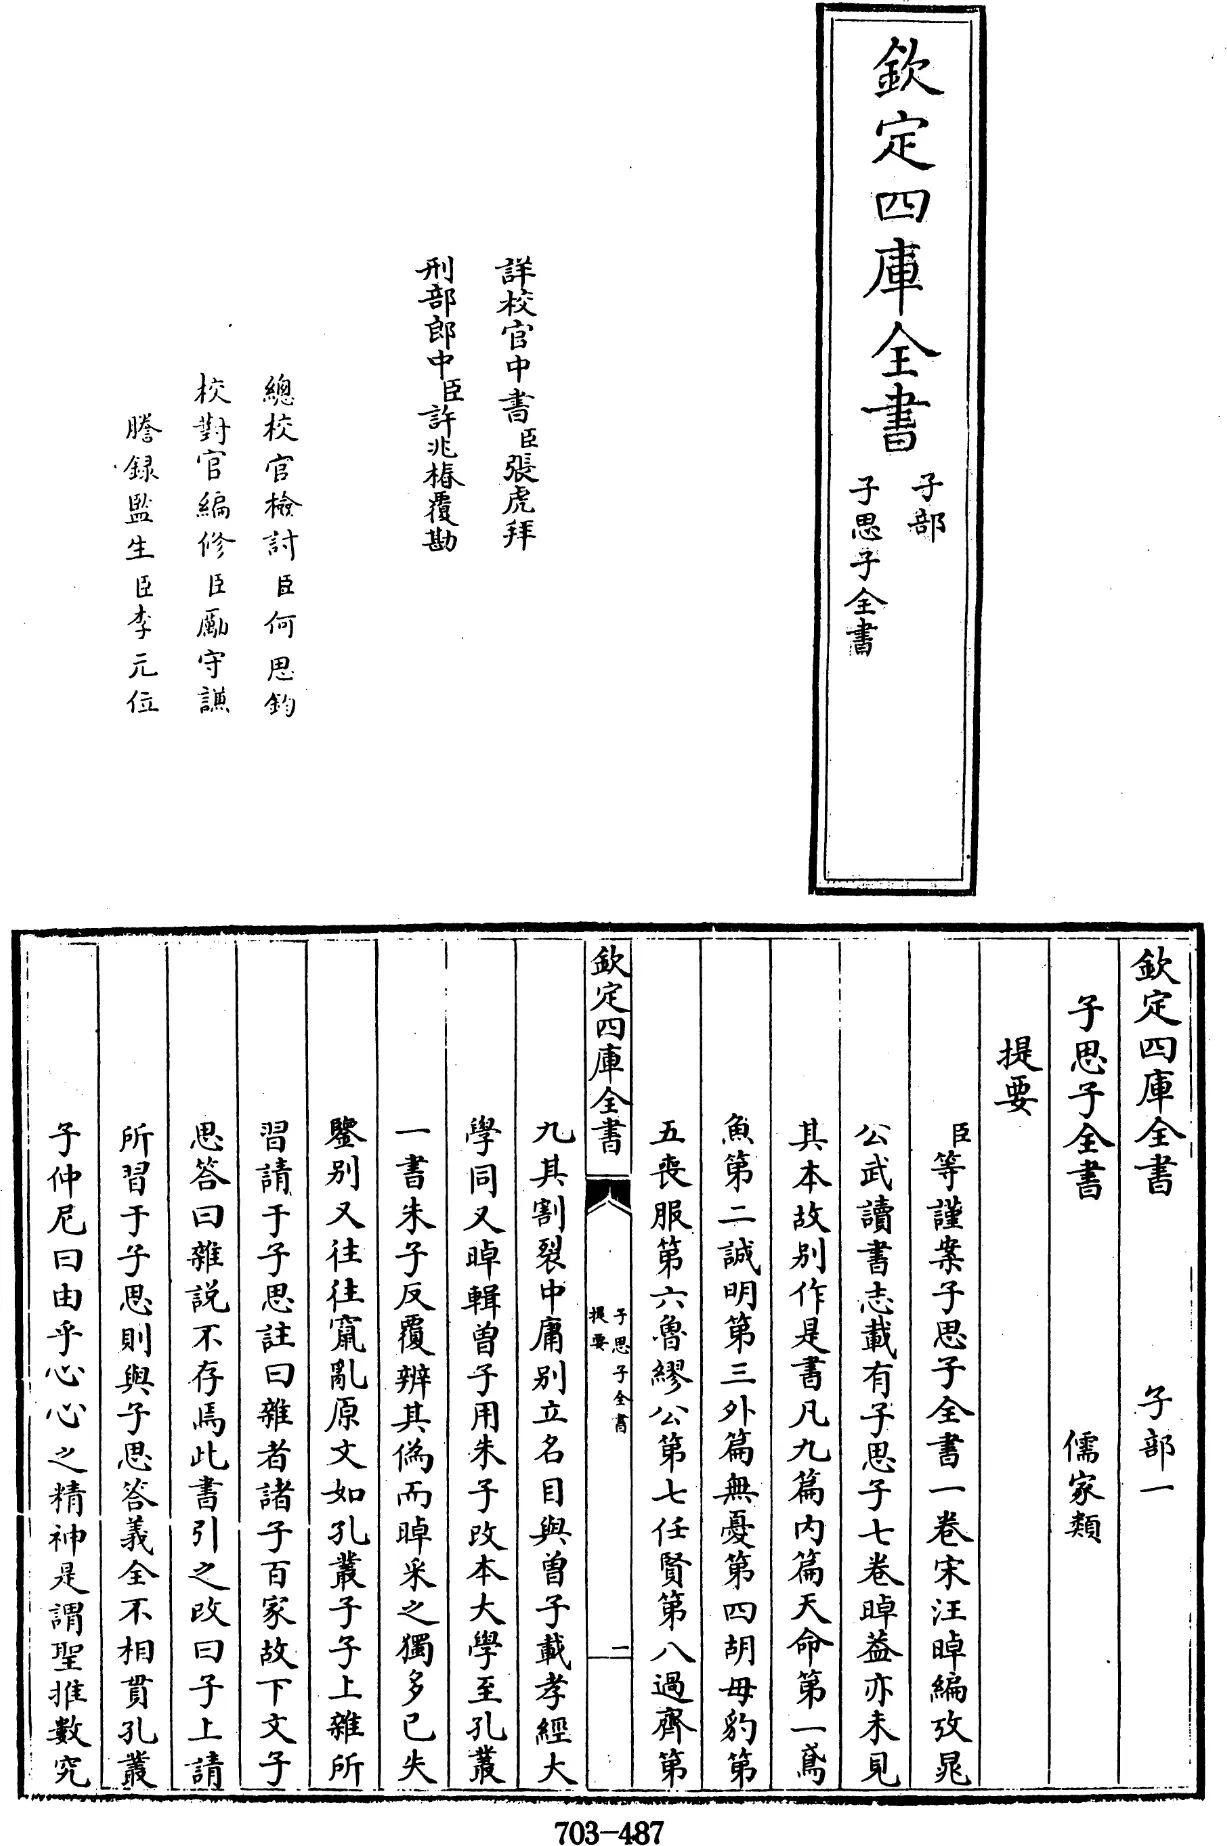 欽定四庫全書
子部
子思子全書
詳校官中書臣張虎拜
刑部郎中臣許兆椿覆勘
總校官檢討臣何思鈞
校對官編修臣勵守謙
謄録監生臣李元位
欽定四庫全書 子部一
子思子全書 儒家類
提要
臣等謹案子思子全書一卷宋汪晫編攷晁
公武讀書志載有子思子七卷晫葢亦未見
其本故别作是書凡九篇内篇天命第一鳶
魚第二誠明第三外篇無憂第四胡母豹第
五喪服第六魯繆公第七任賢第八過齊第
欽定四庫全書
子思子全書
提要
一
九其割裂中庸别立名目與曾子載孝經大
學同又晫輯曾子用朱子改本大學至孔叢
一書朱子反覆辨其偽而晫采之獨多已失
鑒别又往往竄亂原文如孔叢子子上雜所
習請于子思註曰雜者諸子百家故下文子
思答曰雜説不存焉此書引之改曰子上請
所習于子思則與子思答義全不相貫孔叢
子仲尼曰由乎心心之精神是謂聖推數究
703-487